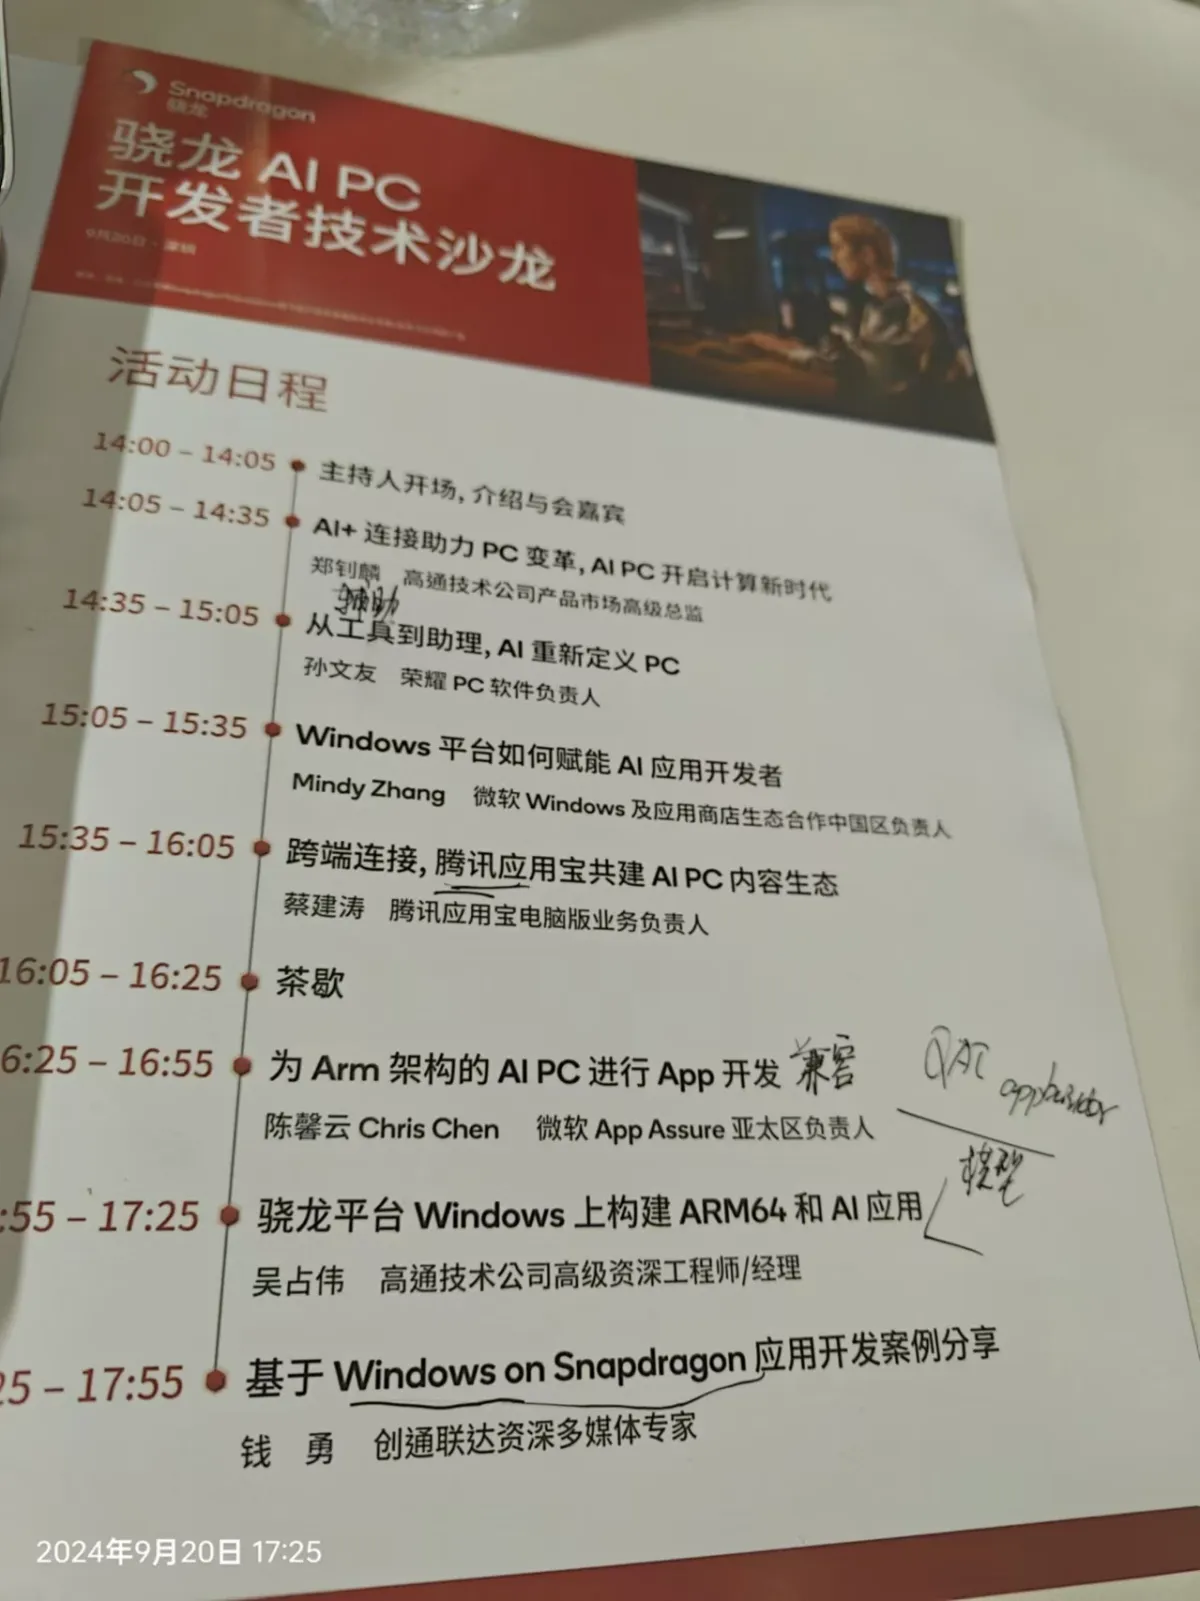 Snapdragon
骁龙
骁龙 AI PC
开发者技术沙龙
9月20日 · 深圳
活动日程
14:00 – 14:05 主持人开场, 介绍与会嘉宾
14:05 – 14:35 AI+ 连接助力 PC 变革, AI PC 开启计算新时代
郑钊麟 高通技术公司产品市场高级总监
辅助
14:35 – 15:05 从工具到助理, AI 重新定义 PC
孙文友 荣耀 PC 软件负责人
15:05 – 15:35 Windows 平台如何赋能 AI 应用开发者
Mindy Zhang 微软 Windows 及应用商店生态合作中国区负责人
15:35 – 16:05 跨端连接, 腾讯应用宝共建 AI PC 内容生态
蔡建涛 腾讯应用宝电脑版业务负责人
16:05 – 16:25 茶歇
6:25 – 16:55 为 Arm 架构的 AI PC 进行 App 开发 兼容
陈馨云 Chris Chen 微软 App Assure 亚太区负责人
模型
:55 – 17:25 骁龙平台 Windows 上构建 ARM64 和 AI 应用
吴占伟 高通技术公司高级资深工程师/经理
25 – 17:55 基于 Windows on Snapdragon 应用开发案例分享
钱 勇 创通联达资深多媒体专家
2024年9月20日 17:25